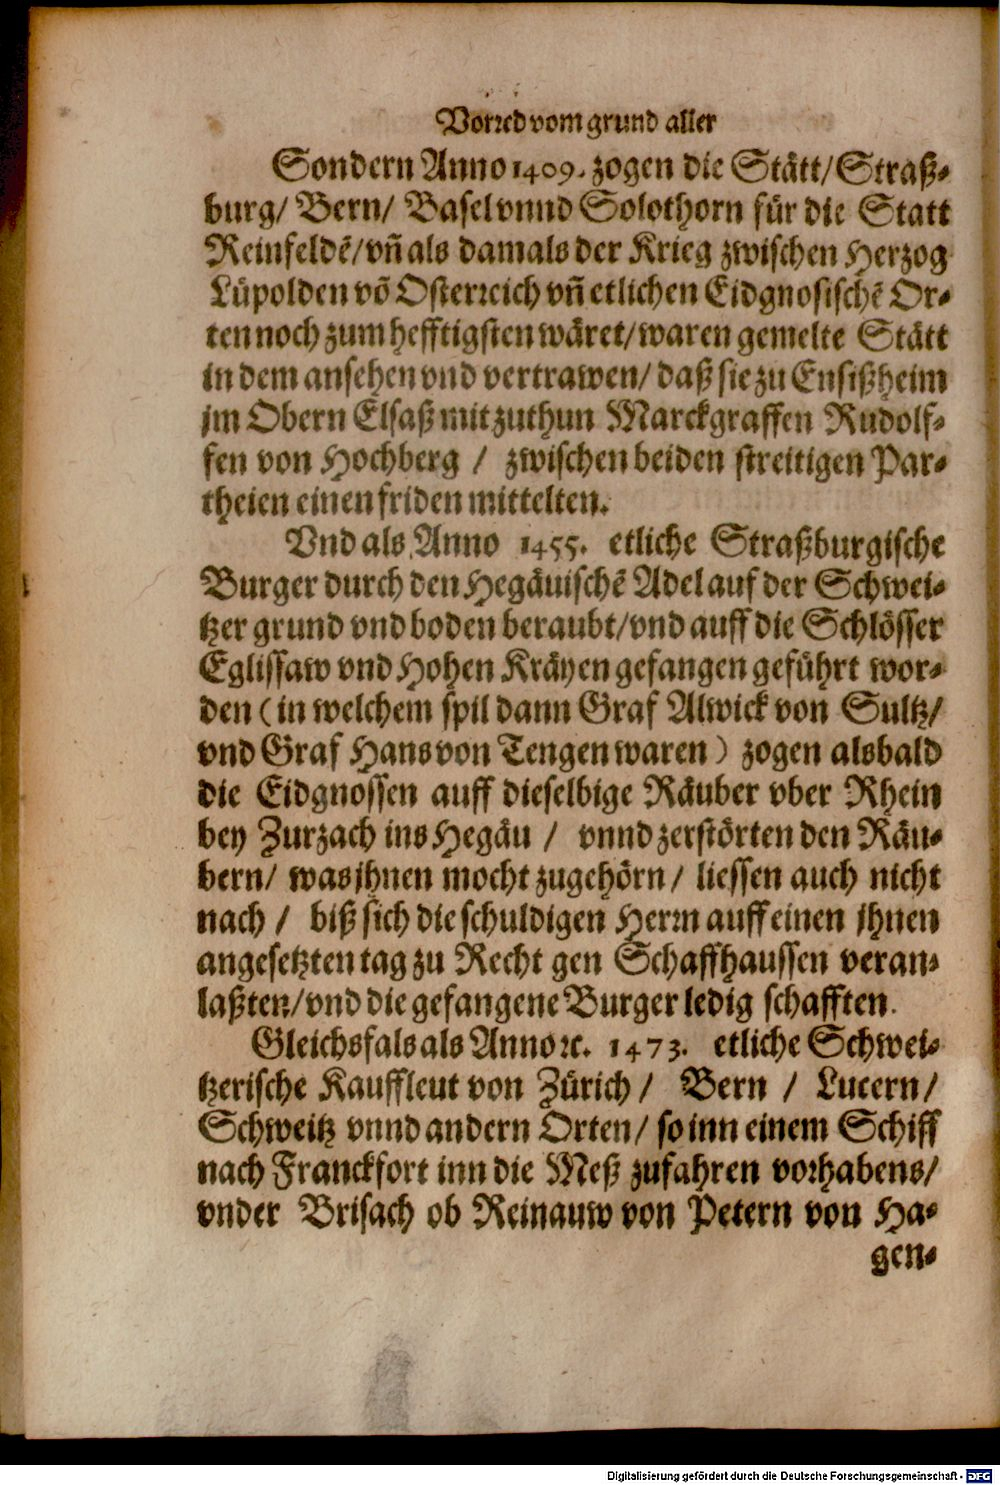 Vorred vom grund aller
Sondern Anno 1409. zogen die Stätt/ Straß-
burg/ Bern/ Basel vnnd Solothorn für die Statt
Reinfeldẽ/ vñ als damals der Krieg zwischen Herzog
Lüpolden võ Osterreich vñ etlichen Eidgnosischẽ Or-
ten noch zum hefftigsten wäret/ waren gemelte Stätt
in dem ansehen vnd vertrawen/ daß sie zu Ensißheim
jm Obern Elsaß mit zuthun Marckgraffen Rudolf-
fen von Hochberg / zwischen beiden streitigen Par-
theien einen friden mittelten.
Vnd als Anno 1455. etliche Straßburgische
Burger durch den Hegäuischẽ Adel auf der Schwei-
tzer grund vnd boden beraubt/ vnd auff die Schlösser
Eglissaw vnd Hohen Kräyen gefangen geführt wor-
den ( in welchem spil dann Graf Alwick von Sultz/
vnd Graf Hans von Tengen waren ) zogen alsbald
die Eidgnossen auff dieselbige Räuber vber Rhein
bey Zurzach ins Hegäu / vnnd zerstörten den Räu-
bern/ was jhnen mocht zugehörn/ liessen auch nicht
nach / biß sich die schuldigen Herrn auff einen jhnen
angesetzten tag zu Recht gen Schaffhaussen veran-
laßten/ vnd die gefangene Burger ledig schafften.
Gleichsfals als Anno ꝛc. 1473. etliche Schwei-
tzerische Kauffleut von Zürich / Bern / Lucern/
Schweitz vnnd andern Orten/ so inn einem Schiff
nach Franckfort inn die Meß zufahren vorhabens/
vnder Brisach ob Reinauw von Petern von Ha-
gen-
Digitalisierung gefördert durch die Deutsche Forschungsgemeinschaft - DFG